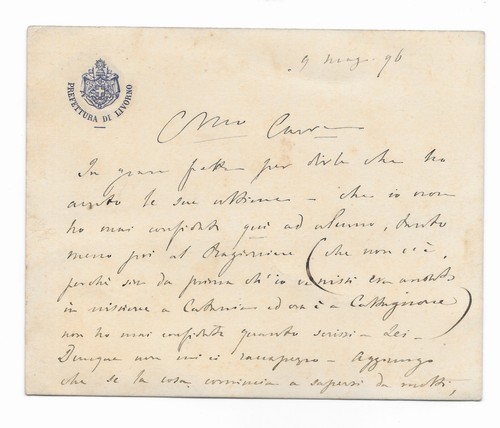 PREFETTURA DI LIVORNO
9 mag. 96
Caro
In gran fretta per dirle che ho
avuto le sue ultime – che io non
ho mai confidato qui ad alcuno, tanto
meno poi al Ragioniere (che non c'è,
perchè sin da prima ch'io venissi era andato
in missione a Catania ed ora è a Caltagirone)
non ho mai confidato quanto scrissi a Lei –
Dunque non mi ci raccapezzo – Aggiungo
che se la cosa comincia a sapersi da molti,